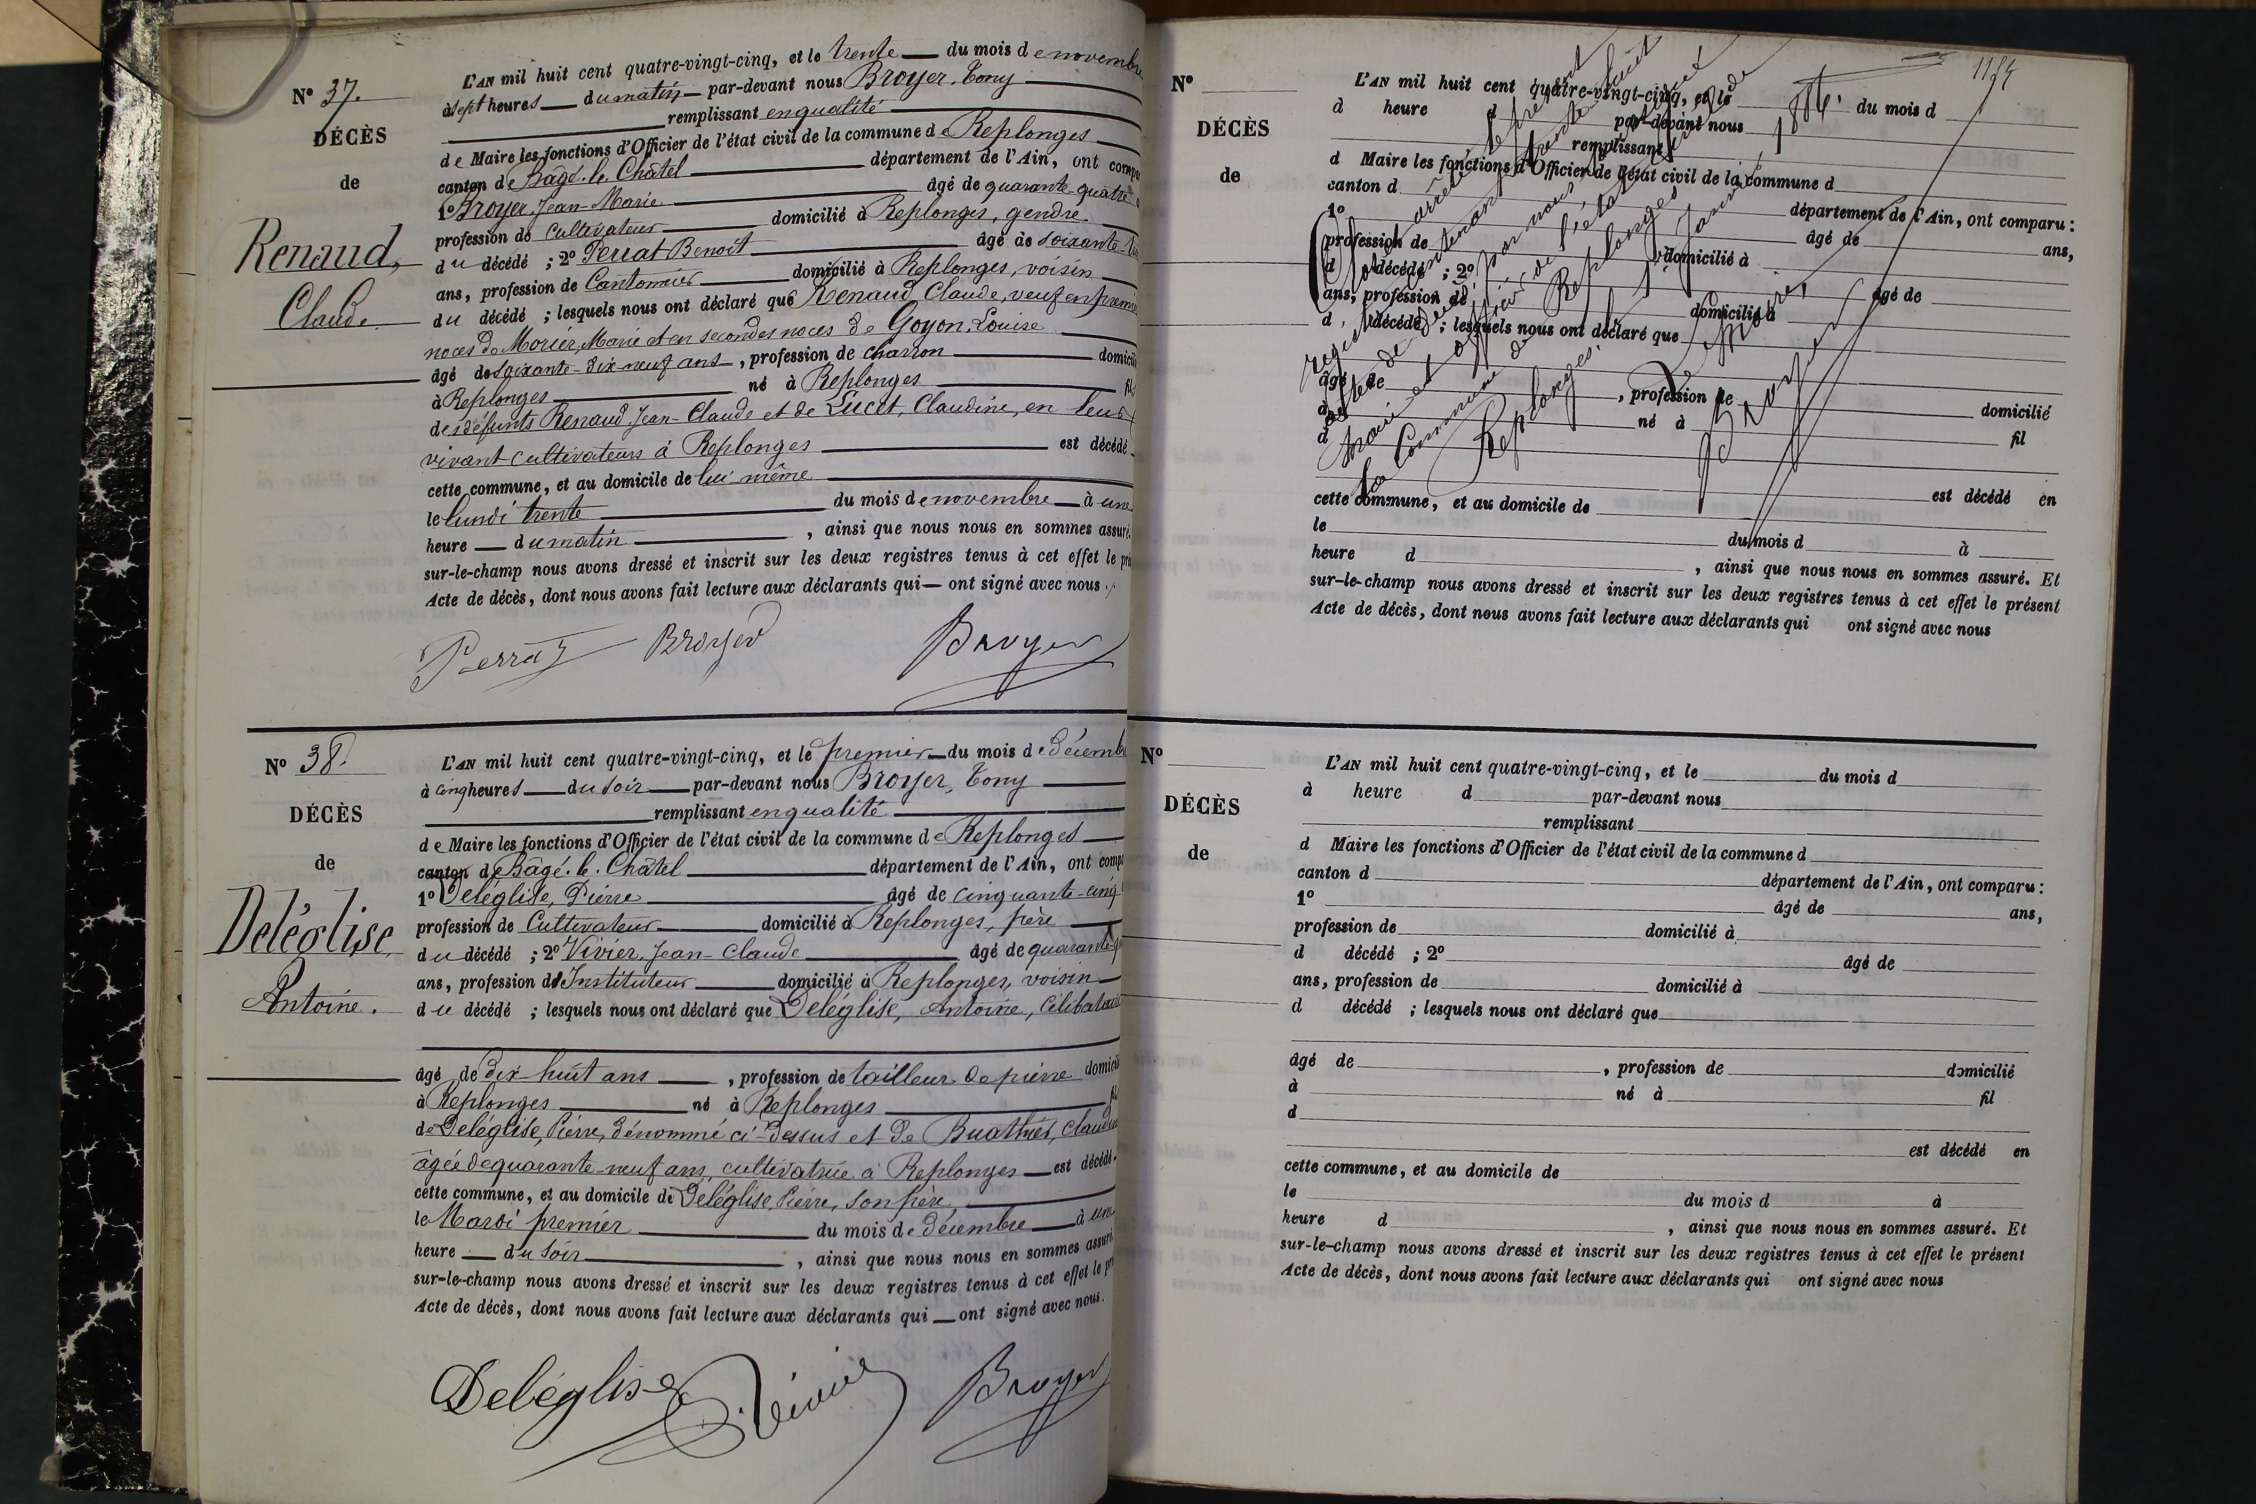 N° 37.
DÉCÈS
de
Renaud,
Claude.
L'AN mil huit cent quatre-vingt-cinq, et le trente du mois de novembre
à sept heures du matin par-devant nous Broyer, Tony
remplissant en qualité
de Maire les fonctions d'Officier de l'état civil de la commune de Replonges
canton de Bâgé-le-Châtel département de l'Ain, ont compa
1° Broyer, Jean-Marie âgé de quarante-quatre
profession de cultivateur domicilié à Replonges, gendre
du décédé ; 2° Perrat Benoît âgé de soixante
ans, profession de Cantonnier domicilié à Replonges, voisin
du décédé ; lesquels nous ont déclaré que Renaud, Claude, veuf en premi
noces de Morier, Marie et en secondes noces de Goyon, Louise
âgé de soixante-dix-neuf ans, profession de charron domicilié
à Replonges né à Replonges fils
des défunts Renaud, Jean-Claude et de Lucet, Claudine, en leur
vivant cultivateurs à Replonges est décédé
cette commune, et au domicile de lui-même
le lundi trente du mois de novembre à une
heure du matin, ainsi que nous nous en sommes assuré.
sur-le-champ nous avons dressé et inscrit sur les deux registres tenus à cet effet le pré
Acte de décès, dont nous avons fait lecture aux déclarants qui ont signé avec nous.
Perrat Broyer Broyer
N° 38.
DÉCÈS
de
Deléglise,
Antoine.
L'AN mil huit cent quatre-vingt-cinq, et le premier du mois de Décemb
à cinq heures du soir par-devant nous Broyer, Tony
remplissant en qualité
de Maire les fonctions d'Officier de l'état civil de la commune de Replonges
canton de Bâgé-le-Châtel département de l'Ain, ont compa
1° Deléglise, Pierre âgé de cinquante-cinq
profession de Cultivateur domicilié à Replonges, père
du décédé ; 2° Vivier, Jean-Claude âgé de quarante
ans, profession d'Instituteur domicilié à Replonges, voisin
du décédé ; lesquels nous ont déclaré que Deléglise, Antoine, Célibataire
âgé de dix-huit ans, profession de tailleur de pierre domicilié
à Replonges né à Replonges
de Deléglise, Pierre, dénommé ci-dessus et de Buathier, Claudine
âgée de quarante-neuf ans, cultivatrice à Replonges est décédé
cette commune, et au domicile de Deléglise, Pierre, son père
le Mardi premier du mois de décembre à une
heure du soir, ainsi que nous nous en sommes assuré
sur-le-champ nous avons dressé et inscrit sur les deux registres tenus à cet effet le pré
Acte de décès, dont nous avons fait lecture aux déclarants qui ont signé avec nous.
Deléglise J. Vivier Broyer
N°
DÉCÈS
de
L'AN mil huit cent quatre-vingt-cinq, et le du mois d
d heure d par-devant nous
remplissant
d Maire les fonctions d'Officier de l'état civil de la commune d
canton d département de l'Ain, ont comparu :
1° âgé de ans,
profession de domicilié à
d décédé ; 2° âgé de
ans, profession de domicilié à
d décédé ; lesquels nous ont déclaré que
âgé de, profession de domicilié
à né à fil
d
est décédé en
cette commune, et au domicile de
le du mois d à
heure d, ainsi que nous nous en sommes assuré. Et
sur-le-champ nous avons dressé et inscrit sur les deux registres tenus à cet effet le présent
Acte de décès, dont nous avons fait lecture aux déclarants qui ont signé avec nous
arrêté le présent
registre contenant trente huit
actes de décès par nous
maire et officier de l'état civil de
la Commune de Replonges
Replonges, 1er Janvier 1886.
Le Maire,
Broyer
N°
DÉCÈS
de
L'AN mil huit cent quatre-vingt-cinq, et le du mois d
à heure d par-devant nous
remplissant
d Maire les fonctions d'Officier de l'état civil de la commune d
canton d département de l'Ain, ont comparu :
1° âgé de ans,
profession de domicilié à
d décédé ; 2° âgé de
ans, profession de domicilié à
d décédé ; lesquels nous ont déclaré que
âgé de, profession de domicilié
à né à fil
d
est décédé en
cette commune, et au domicile de
le du mois d à
heure d, ainsi que nous nous en sommes assuré. Et
sur-le-champ nous avons dressé et inscrit sur les deux registres tenus à cet effet le présent
Acte de décès, dont nous avons fait lecture aux déclarants qui ont signé avec nous